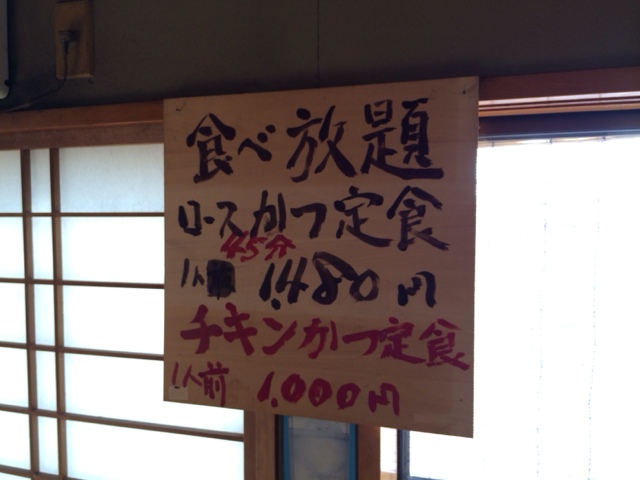 食べ放題
ロースかつ定食
45分
1人 1,480円
チキンかつ定食
1人前 1,000円